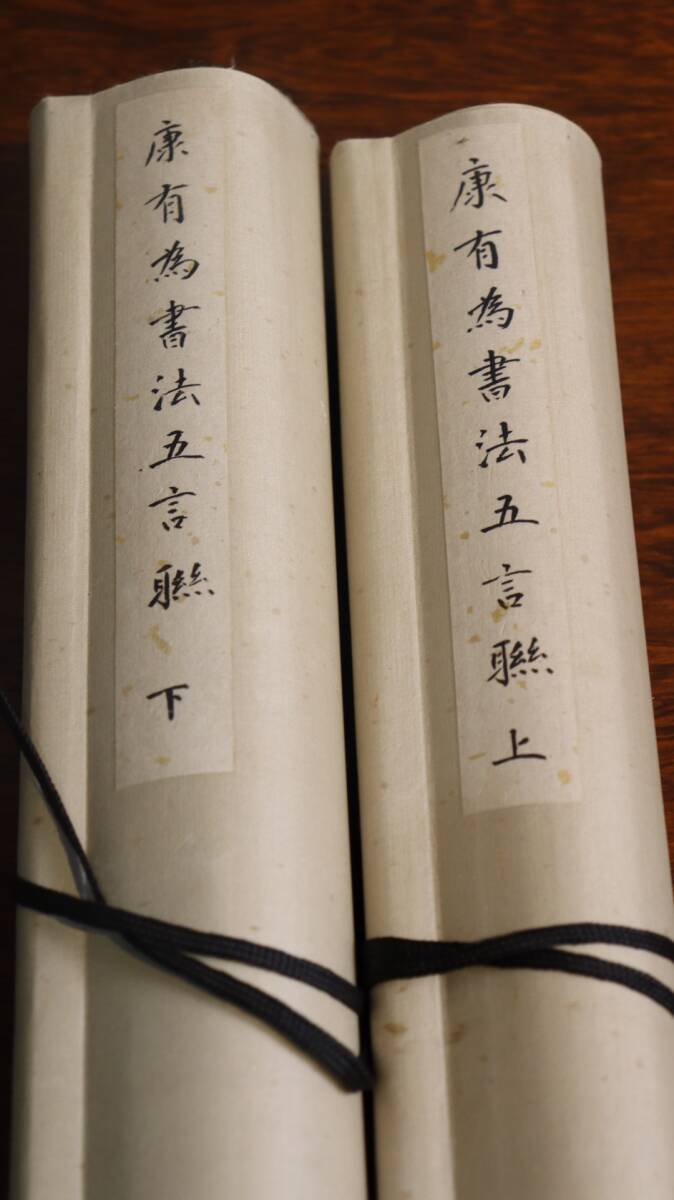 康有為書法五言聯 上
康有為書法五言聯 下